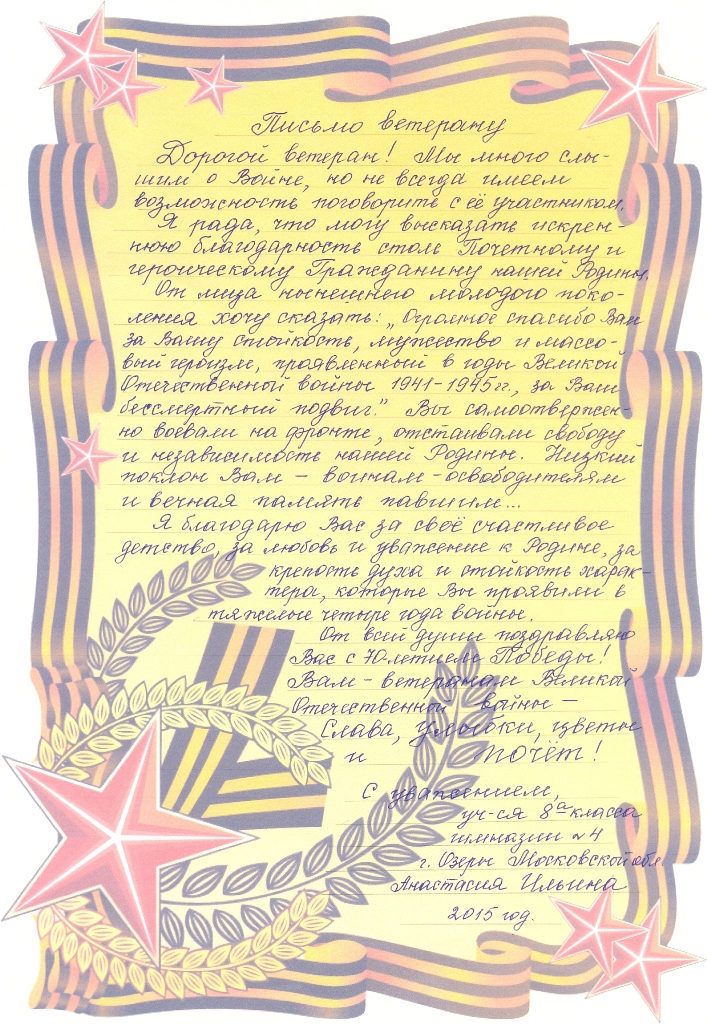 Письмо ветерану
Дорогой ветеран! Мы много слы-
шим о Войне, но не всегда имеем
возможность поговорить с её участником.
Я рада, что могу высказать искрен-
нюю благодарность столь Почетному и
героическому Гражданину нашей Родины.
От лица нынешнего молодого поко-
ления хочу сказать: „Огромное спасибо Вам
за Вашу стойкость, мужество и массо-
вый героизм, проявленный в годы Великой
Отечественной войны 1941-1945 гг., за Ваш
бессмертный подвиг." Вы самоотвержен-
но воевали на фронте, отстаивали свободу
и независимость нашей Родины. Низкий
поклон Вам – воинам-освободителям
и вечная память павшим...
Я благодарю Вас за своё счастливое
детство, за любовь и уважение к Родине, за
крепость духа и стойкость харак-
тера, которые Вы проявили в
тяжелые четыре года войны.
От всей души поздравляю
Вас с 70-летием Победы!
Вам – ветеранам Великой
Отечественной войны –
Слава, улыбки, цветы
и почёт!
С уважением,
уч-ся 8а класса
гимназии №4
г. Озеры Московской обл.
Анастасия Ильина
2015 год.